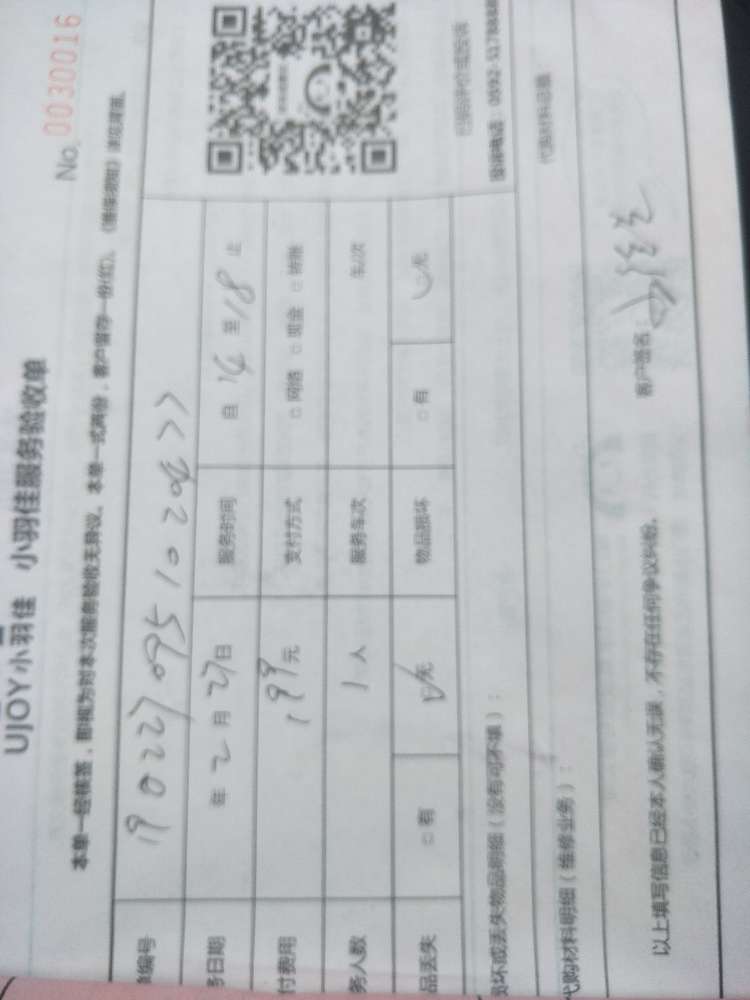 No. 0030016
UJOY小羽佳 小羽佳服务验收单
本单一经核签，即视为对本次服务验收无异议。本单一式两份，客户留存一份(红)。
编号 190227095102
务日期 年 2 月 27 日 服务时间 自 14 至 18 止
付费用 199 元 支付方式 □ 网络 □ 现金 □ 转账
务人数 1 人 服务车次 车/次
品丢失 □ 有 无 物品损坏 □ 有 无
损坏或丢失物品明细（没有可不填）：
代购材料明细（维修业务）：
代购材料总额
以上填写信息已经本人确认无误，不存在任何争议纠纷。 客户签名：